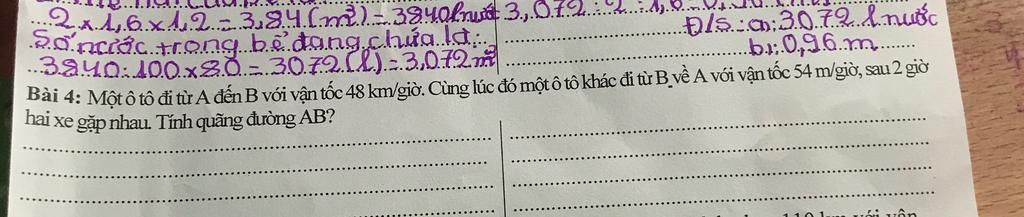 2 x 1,6 x 1,2 = 3,84 (m³) = 3840 l nước
Số nước trong bể đang chứa là:
3840 : 100 x 80 = 3072 (l) = 3,072 m³
3,072 : 2 : 1,6 =
Đ/S: a; 3072 l nước
b; 0,96 m
Bài 4: Một ô tô đi từ A đến B với vận tốc 48 km/giờ. Cùng lúc đó một ô tô khác đi từ B về A với vận tốc 54 m/giờ, sau 2 giờ
hai xe gặp nhau. Tính quãng đường AB?